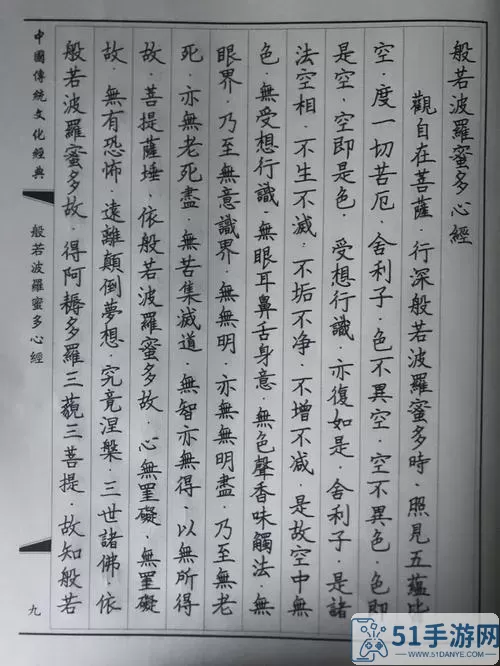 般若波羅蜜多心經
觀自在菩薩·行深般若波羅蜜多時·照見五蘊皆
空·度一切苦厄·舍利子·色不異空·空不異色·色即
是空·空即是色·受想行識·亦復如是·舍利子·是諸
法空相·不生不滅·不垢不净·不增不减·是故空中無
色·無受想行識·無眼耳鼻舌身意·無色聲香味觸法·無
眼界·乃至無意識界·無無明·亦無無明盡·乃至無老
死·亦無老死盡·無苦集滅道·無智亦無得·以無所得
故·菩提薩埵·依般若波羅蜜多故·心無罣礙·無罣礙
故·無有恐怖·遠離顛倒夢想·究竟涅槃·三世諸佛·依
般若波羅蜜多故·得阿耨多羅三藐三菩提·故知般若
中國傳統文化經典
般若波羅蜜多心經
九
51手游网
WWW.51DANYE.COM